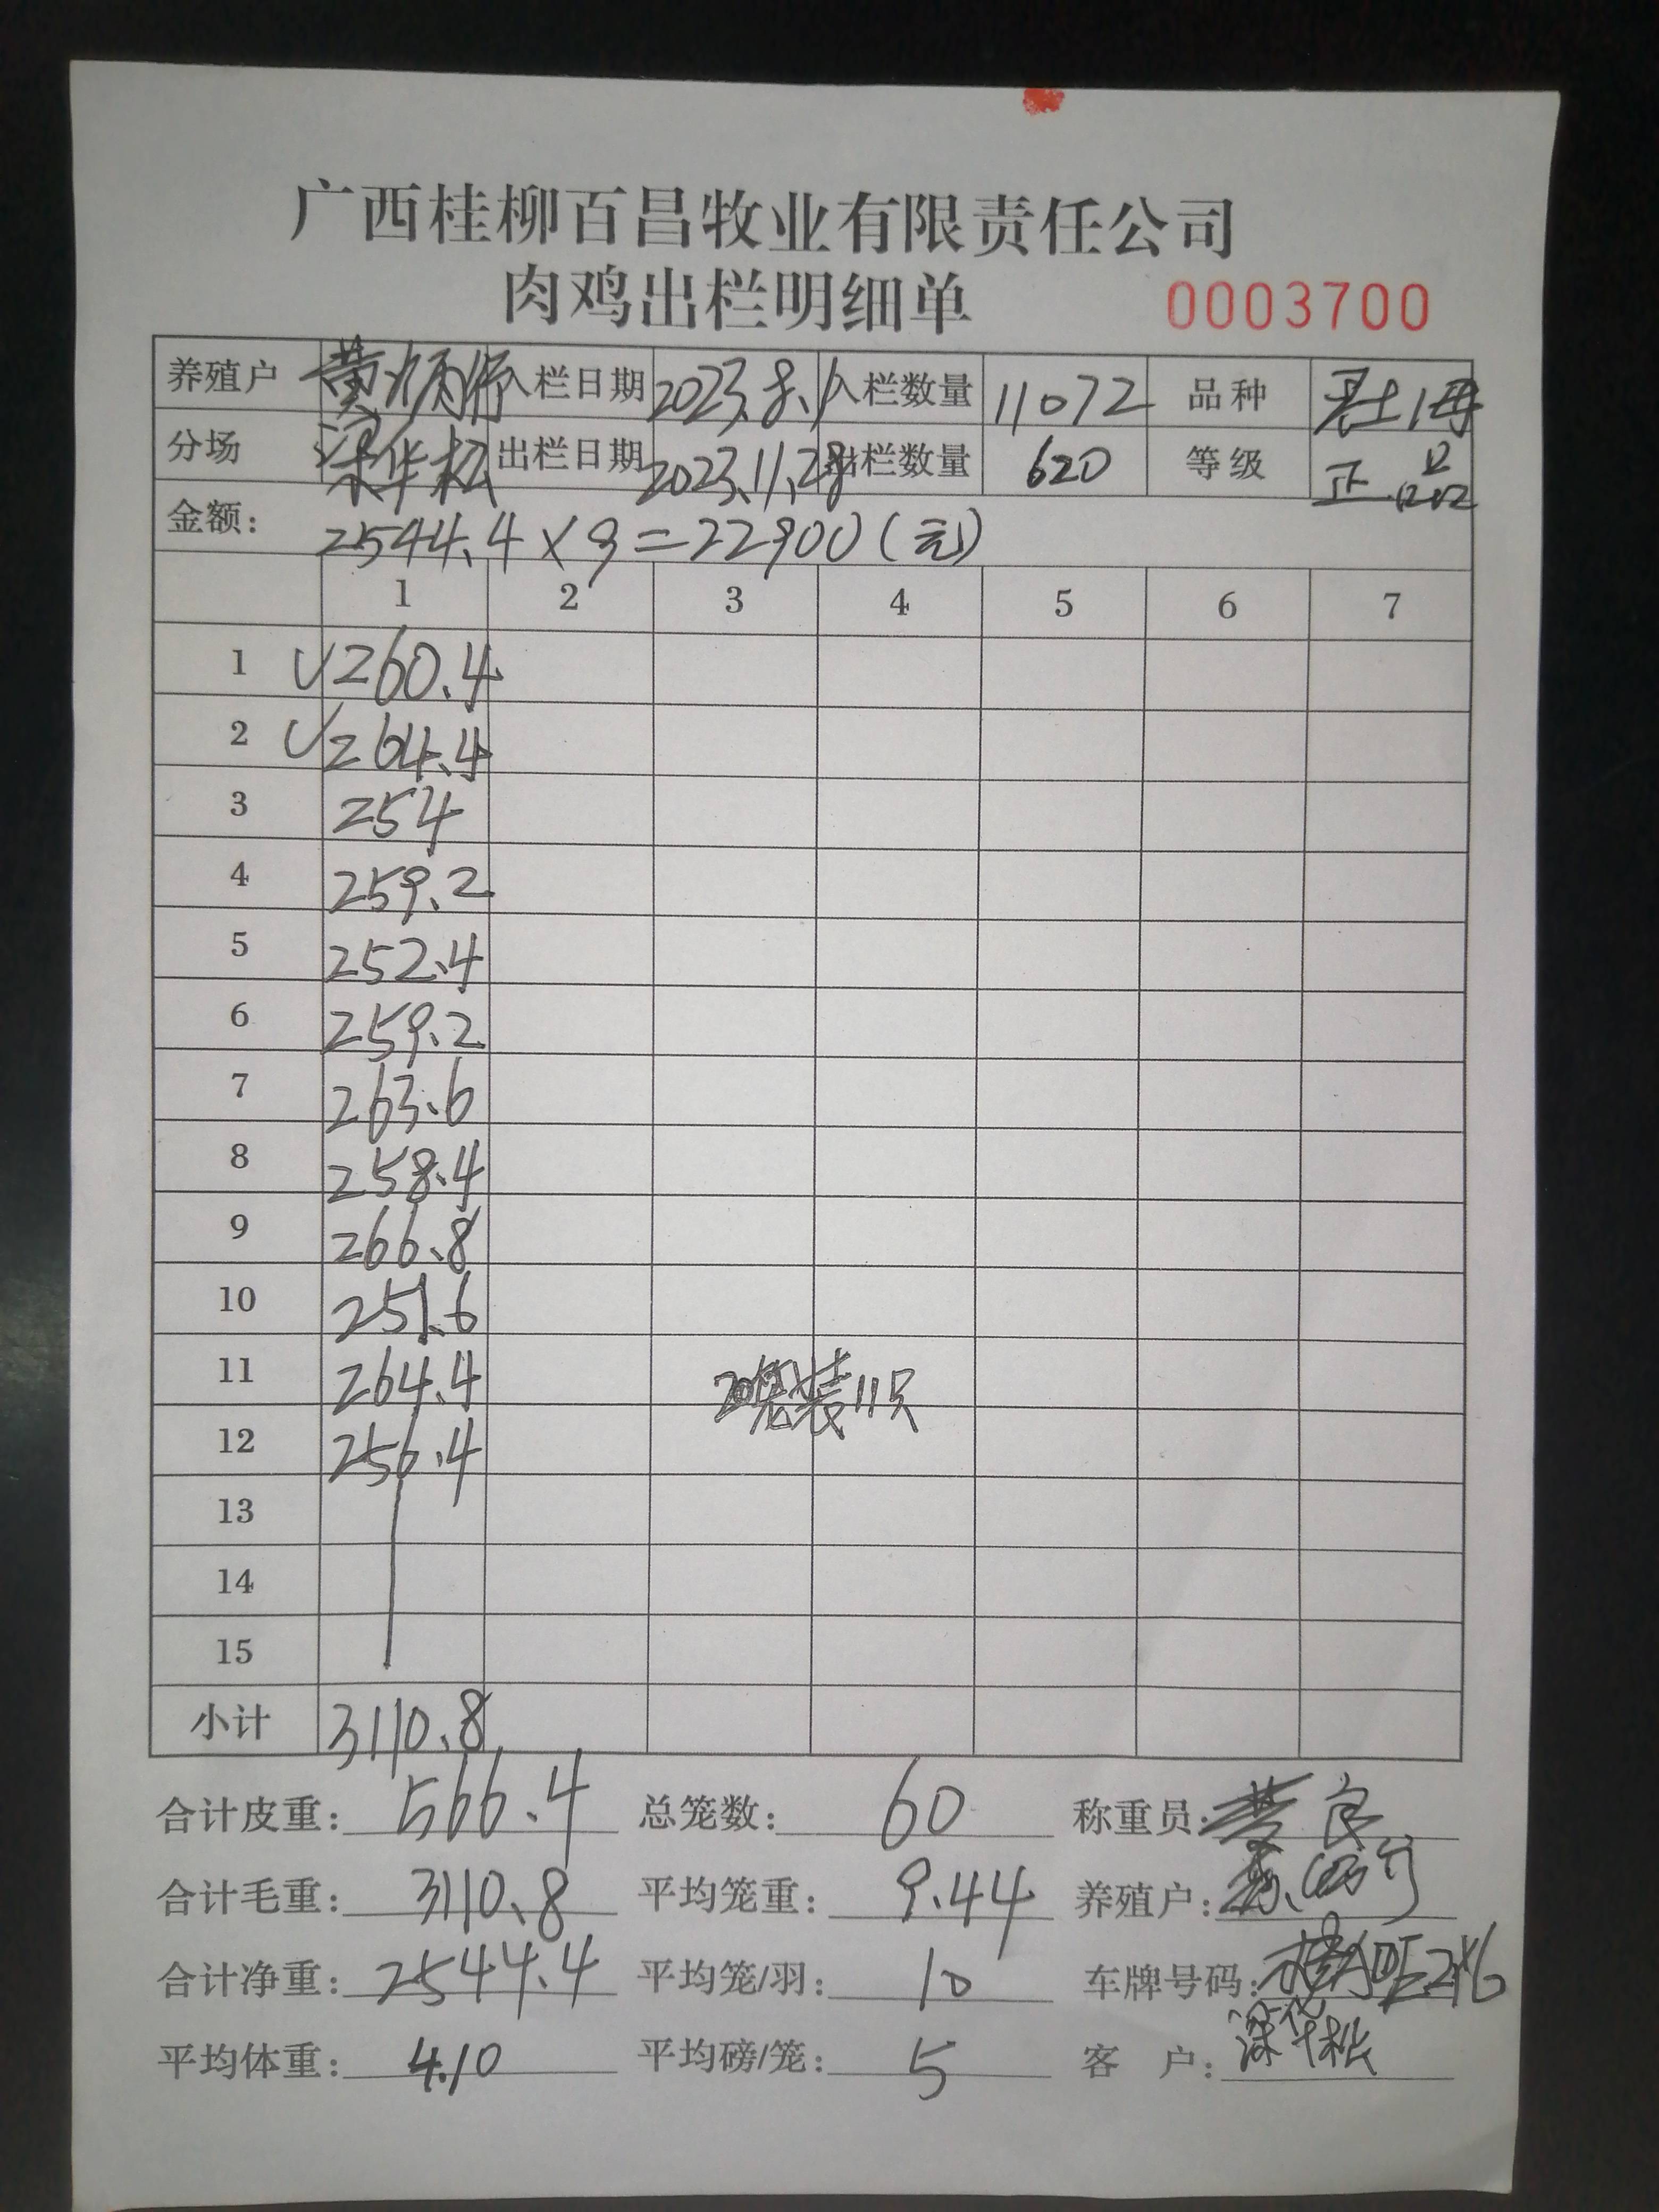 广西桂柳百昌牧业有限责任公司
肉鸡出栏明细单 0003700
养殖户 入栏日期 2023.8.1 入栏数量 11072 品种
分场 梁华松 出栏日期 2023.11.28 出栏数量 620 等级 正品
金额: 2544.4×9=22900(元)
1 2 3 4 5 6 7
1 √260.4
2 √264.4
3 254
4 259.2
5 252.4
6 259.2
7 263.6
8 258.4
9 266.8
10 251.6
11 264.4 装11只
12 256.4
13
14
15
小计 3110.8
合计皮重: 566.4 总笼数: 60 称重员:
合计毛重: 3110.8 平均笼重: 9.44 养殖户:
合计净重: 2544.4 平均笼/羽: 10 车牌号码:
平均体重: 4.10 平均磅/笼: 5 客 户: 梁华松